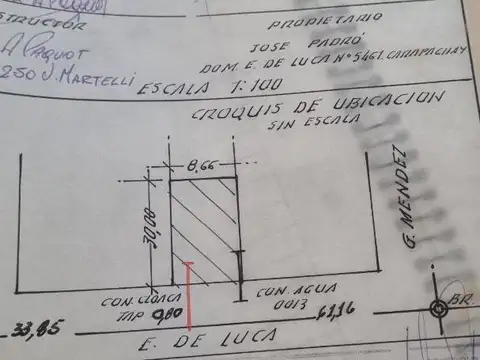 PROPIETARIO
JOSE PADRÓ
DOM. E. DE LUCA Nº 5461. CARAPACHAY
CONSTRUCTOR
A Paquot
250 V. MARTELLI
ESCALA 1:100
CROQUIS DE UBICACION
SIN ESCALA
8,66
30,00
G. MENDEZ
CON. CLOACA
TAP 0,80
CON. AGUA
0013
33,85
61,16
BR.
E. DE LUCA